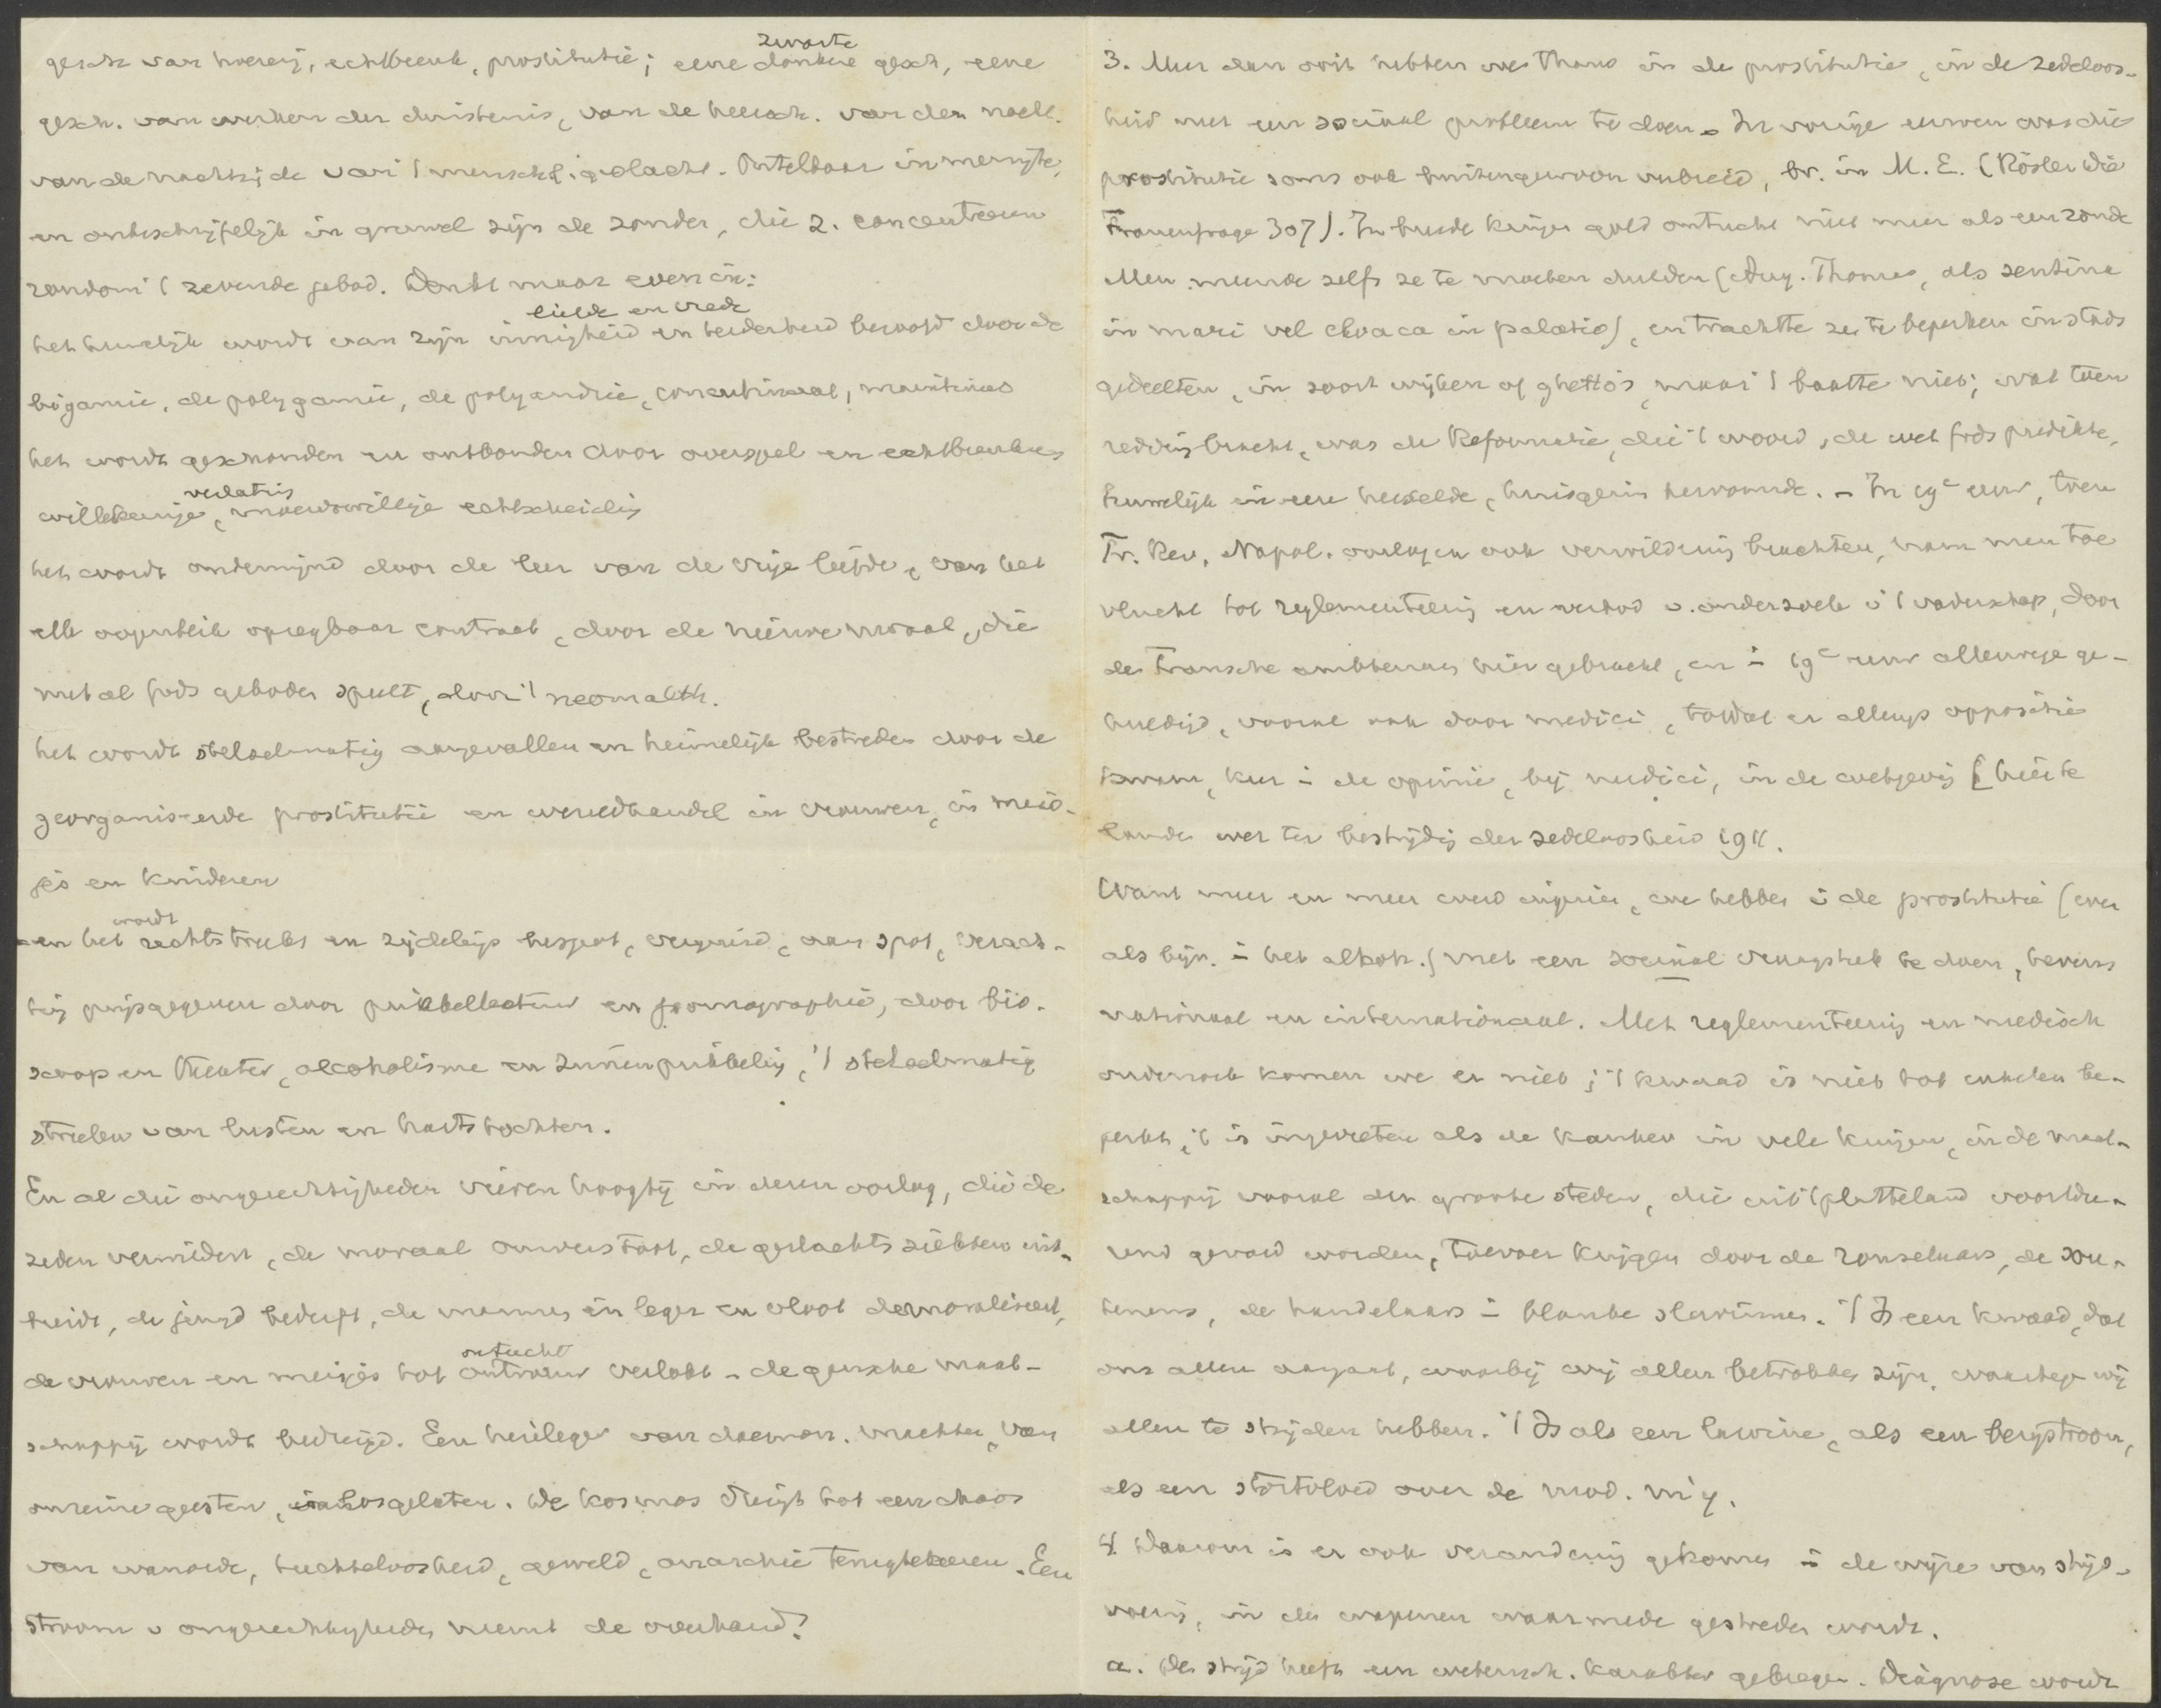 gesch van hoererij, echtbreuk, prostitutie; eene zwarte donkere gesch, eene
gesch. van werken der duisternis, van de heersch. van den nacht.
van de nachtzijde van 't menschel. geslacht. Ontelbaar in menigte,
en onbeschrijfelijk in gruwel zijn de zonden, die z. concentreeren
rondom 't zevende gebod. Denkt maar even in:
het huwelijk wordt van zijn innigheid liefde en vrede en teederheid beroofd door de
bigamie, de polygamie, de polyandrie, concubinaat, maintenees
het wordt geschonden en ontbonden door overspel en echtbreuk
willekeurige, verlating moedwillige echtscheiding
het wordt ondermijnd door de leer van de vrije liefde, van het
elk oogenblik opzegbaar contract, door de nieuwe moraal, die
met al Gods geboden speelt, door 't neomalth.
het wordt stelselmatig aangevallen en heimelijk bestreden door de
georganiseerde prostitutie en wereldhandel in vrouwen, in meis-
jes en kinderen
en het wordt rechtstreeks en zijdelings bespot, aan spot, verach-
ting prijsgegeven door prikkellectuur en pornographie, door bio-
scoop en theater, alcoholisme en zinnenprikkeling, 't stelselmatig
streelen van lusten en hartstochten.
En al die ongerechtigheden vieren hoogtij in dezen oorlog, die de
zeden verwildert, de moraal omverstoot, de geslachtsziekten uit-
breidt, de jeugd bederft, de mannen in leger en vloot demoraliseert,
de vrouwen en meisjes tot ontrouw ontucht verlokt - de gansche maat-
schappij wordt bedreigd. Een heirleger van daemon. machten, van
onreine geesten, losgelaten. De kosmos dreigt tot een chaos
van wanorde, tuchteloosheid, geweld, anarchie terugtekeeren. Een
stroom v ongerechtigheden neemt de overhand?
3. Meer dan ooit hebben we thans in de prostitutie, in de zedeloos-
heid met een sociaal probleem te doen. In vorige eeuwen was die
prostitutie soms ook buitengewoon verbreid, bv. in M. E. (Rösler Die
Frauenfrage 307). In breede kringen gold ontucht niet meer als een zonde
Men meende zelfs ze te moeten dulden (Aug. Thomas, als sentina
in mari vel cloaca in palatio), en trachtte ze te beperken in stads
gedeelten, in soort wijken of ghetto's, maar 't baatte niet; wat toen
redding bracht, was de Reformatie, die 't woord, de wet Gods predikte,
huwelijk in eere herstelde, huisgezin hervormde. - In 19e eeuw, toen
Fr. Rev., Napol. oorlogen ook verwildering brachten, nam men toe
vlucht tot reglementeering en verbod v. onderzoek v 't vaderschap, door
de Fransche ambtenaren hier gebracht, en in 19e eeuw allerwege ge-
huldigd, vooral ook door medici, totdat er allengs oppositie
kwam, keer in de opinie, bij medici, in de wetgeving [hier te
lande wet ter bestrijding der zedeloosheid 1911.
Want meer en meer werd ingezien, we hebben in de prostitutie (even
als bijv. in het alkoh.) met een sociaal vraagstuk te doen, tevens
nationaal en internationaal. Met reglementeering en medisch
onderzoek komen we er niet; 't kwaad is niet tot enkelen be-
perkt, 't is ingevreten als de kanker in vele kringen, in de maat-
schappij vooral der groote steden, die uit 't platteland voortdu-
rend gevoed worden, toevoer krijgen door de ronselaars, de sou-
teneurs, de handelaars in blanke slavinnen. 't Is een kwaad, dat
ons allen aangaat, waarbij wij allen betrokken zijn, waartegen wij
allen te strijden hebben. 't Is als een lawine, als een bergstroom,
als een stortvloed over de mod. mij.
4. Daarom is er ook verandering gekomen in de wijze van strijd-
voering, in de wapenen waarmede gestreden wordt.
a. De strijd heeft een wetensch. karakter gekregen. Diagnose wordt